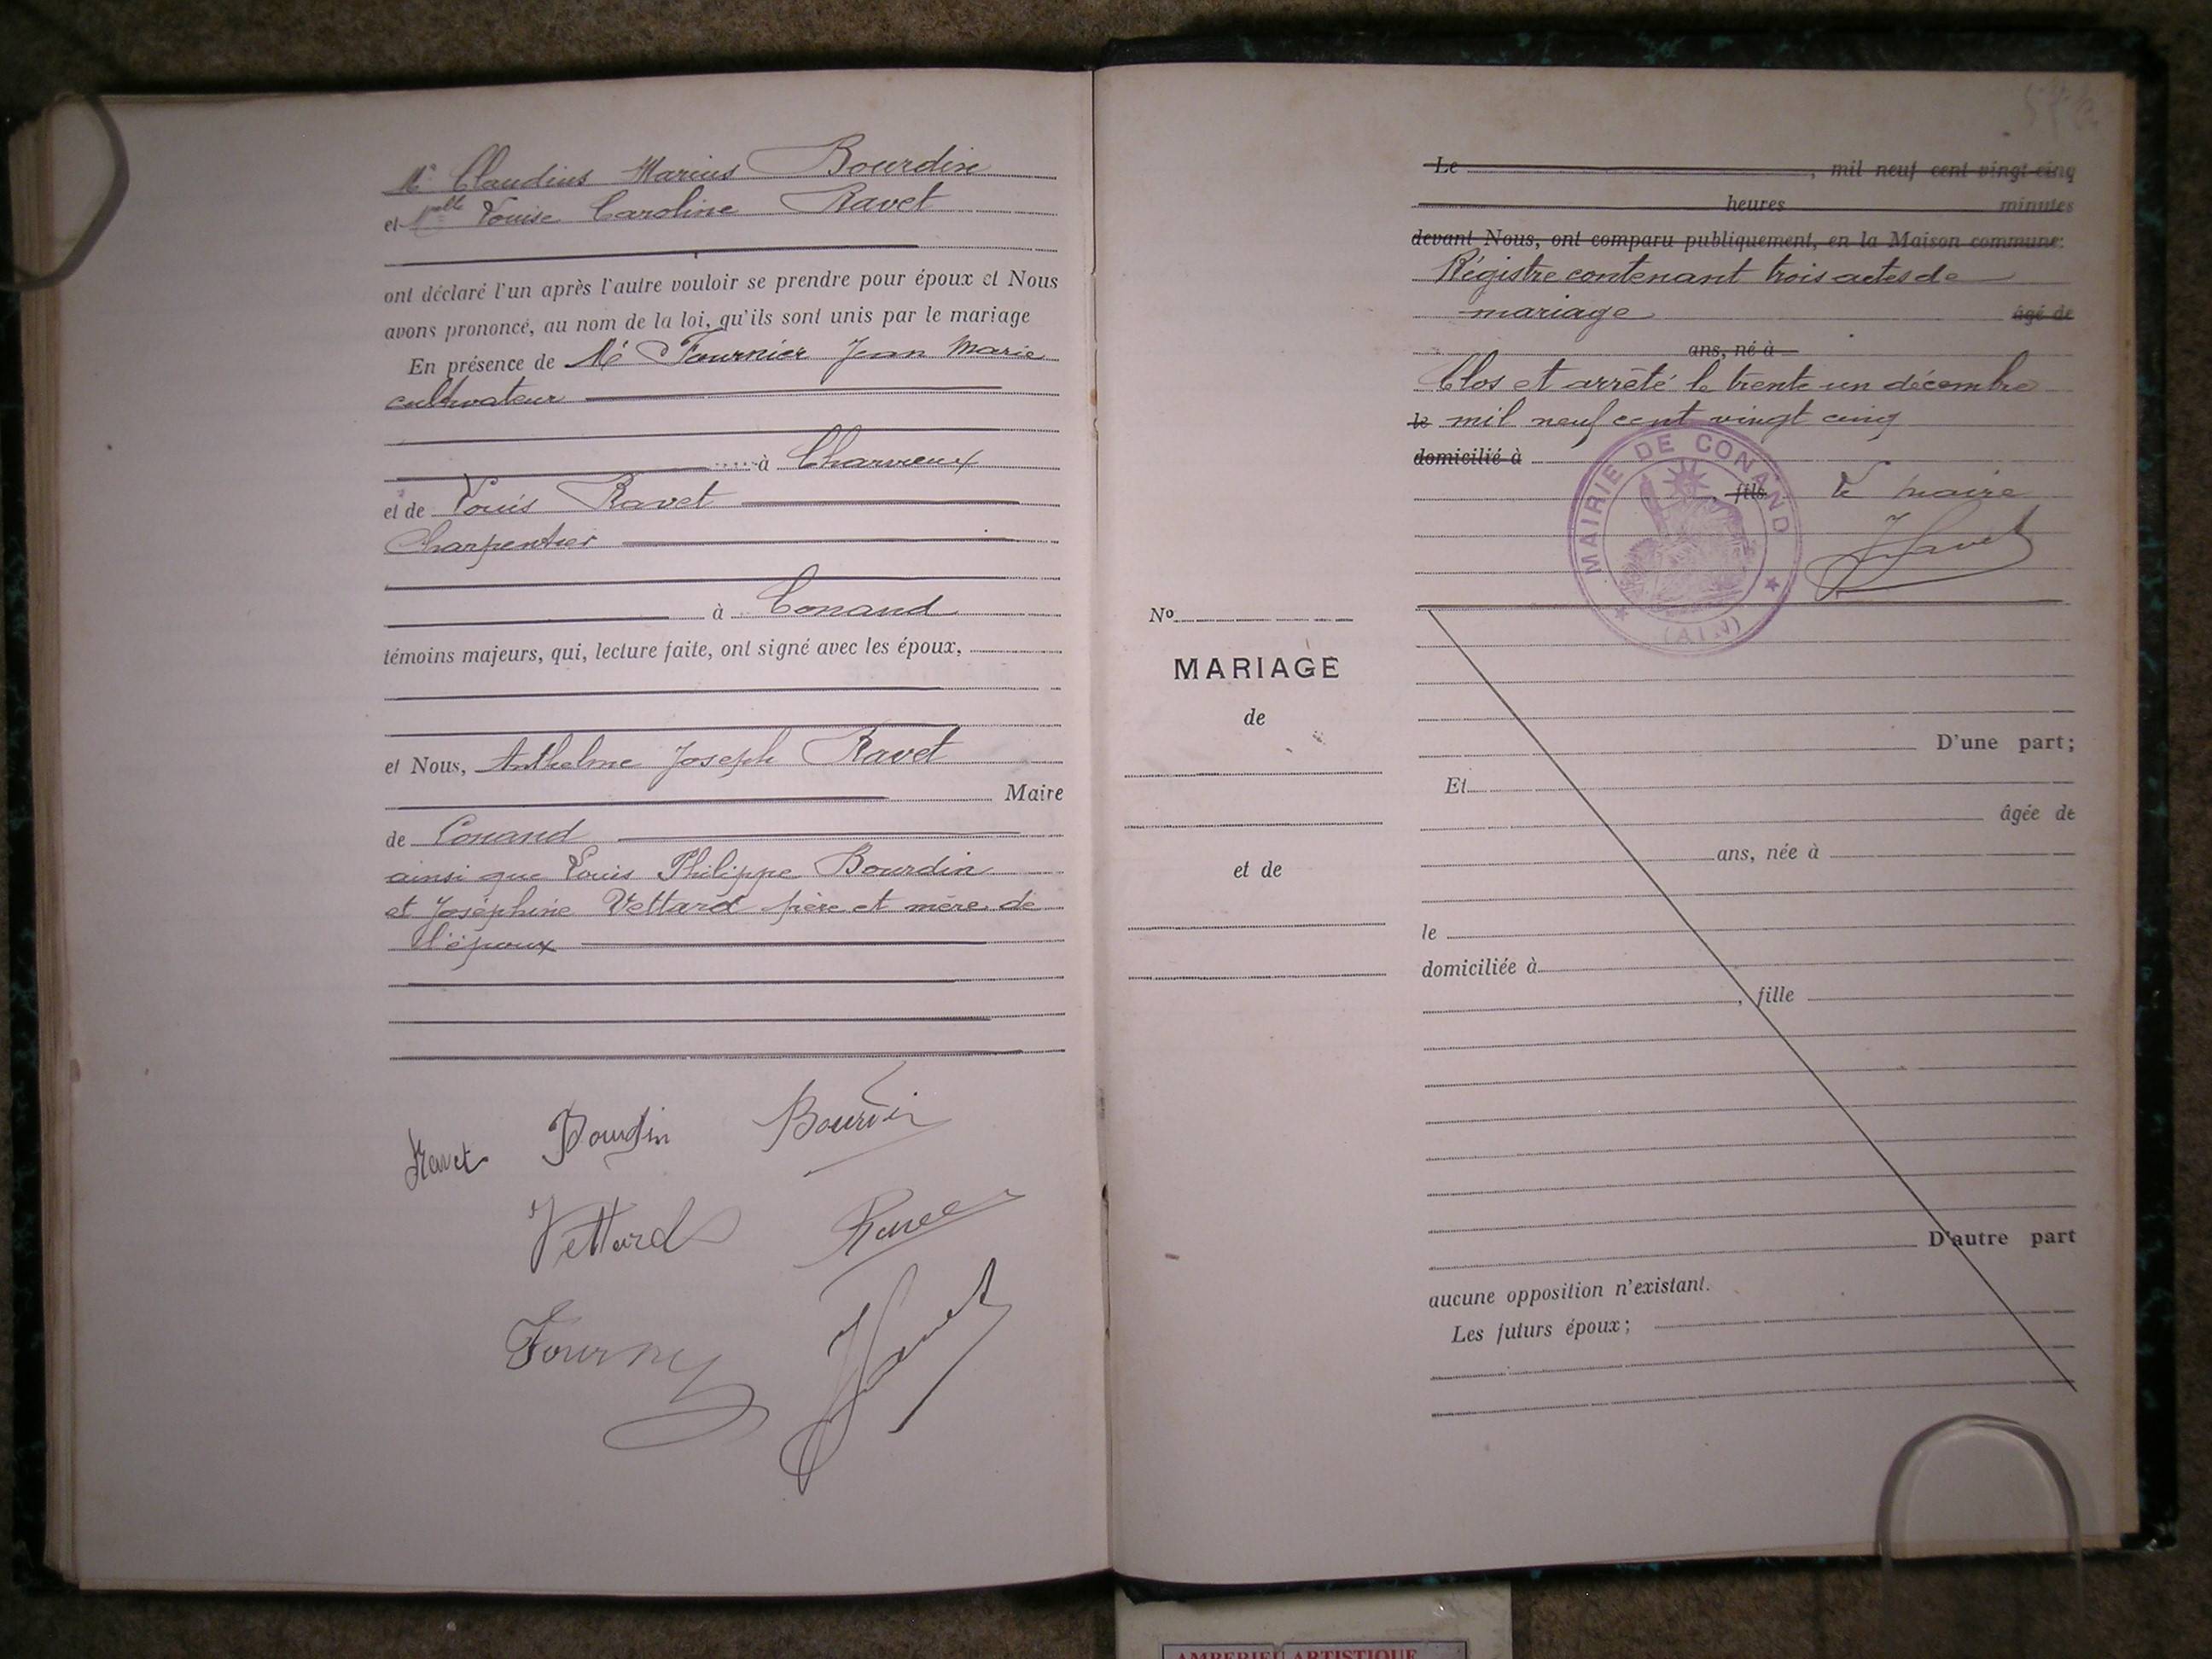 Mr Claudius Marius Bourdin
et Melle Louise Caroline Ravet
ont déclaré l'un après l'autre vouloir se prendre pour époux et Nous
avons prononcé, au nom de la loi, qu'ils sont unis par le mariage
En présence de Mr Fournier Jean Marie
cultivateur
à Charvieux
et de Louis Ravet
Charpentier
à Conand
témoins majeurs, qui, lecture faite, ont signé avec les époux,
et Nous, Anthelme Joseph Ravet
Maire
de Conand
ainsi que Louis Philippe Bourdin
et Joséphine Vettard père et mère de
l'époux
Ravet Bourdin Bourdin
Vettard Ravet
Fourny JRavet
Le , mil neuf cent vingt-cinq
heures minutes
devant Nous, ont comparu publiquement, en la Maison commune:
Régistre contenant trois actes de
mariage âgé de
ans, né à
Clos et arrêté le trente un décembre
le mil neuf cent vingt cinq
domicilié à
, fils Le maire
JRavet
MAIRIE DE CONAND
(AIN)
No
MARIAGE
de
et de
D'une part;
Et
âgée de
ans, née à
le
domiciliée à
, fille
D'autre part
aucune opposition n'existant.
Les futurs époux;
AMBERIEU ARTISTIQUE